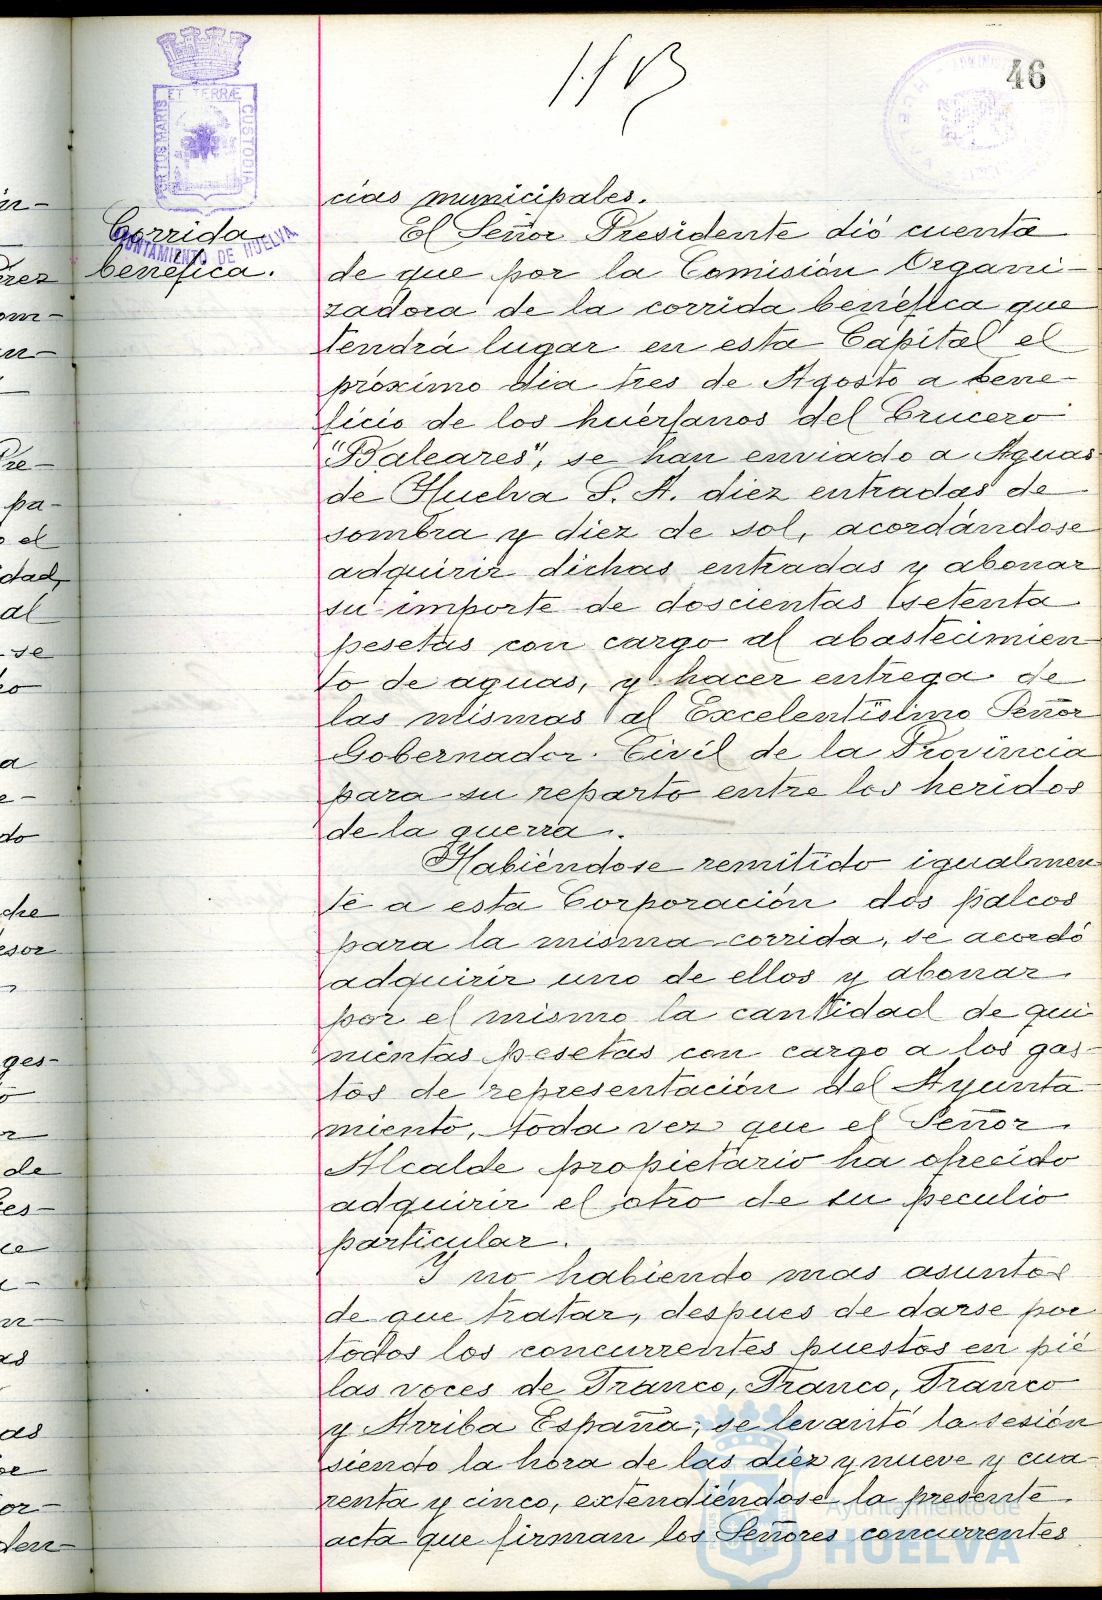 46
PORTUS MARIS
ET TERRÆ
CUSTODIA
AYUNTAMIENTO DE HUELVA
Corrida
benéfica.
cias municipales.
El Señor Presidente dió cuenta
de que por la Comisión Organi-
zadora de la corrida benéfica que
tendrá lugar en esta Capital el
próximo dia tres de Agosto a bene-
ficio de los huérfanos del Crucero
"Baleares", se han enviado a Aguas
de Huelva S. A. diez entradas de
sombra y diez de sol, acordándose
adquirir dichas entradas y abonar
su importe de doscientas setenta
pesetas con cargo al abastecimien
to de aguas, y hacer entrega de
las mismas al Excelentísimo Señor
Gobernador Civil de la Provincia
para su reparto entre los heridos
de la guerra.
Habiéndose remitido igualmen
te a esta Corporación dos palcos
para la misma corrida, se acordó
adquirir uno de ellos y abonar
por el mismo la cantidad de qui
nientas pesetas con cargo a los gas-
tos de representación del Ayunta
miento, toda vez que el Señor
Alcalde propietario ha ofrecido
adquirir el otro de su peculio
particular.
Y no habiendo mas asuntos
de que tratar, despues de darse por
todos los concurrentes puestos en pié
las voces de Franco, Franco, Franco
y Arriba España; se levantó la sesión
siendo la hora de las diez y nueve y cua-
renta y cinco, extendiéndose la presente
acta que firman los Señores concurrentes
Ayuntamiento de
HUELVA